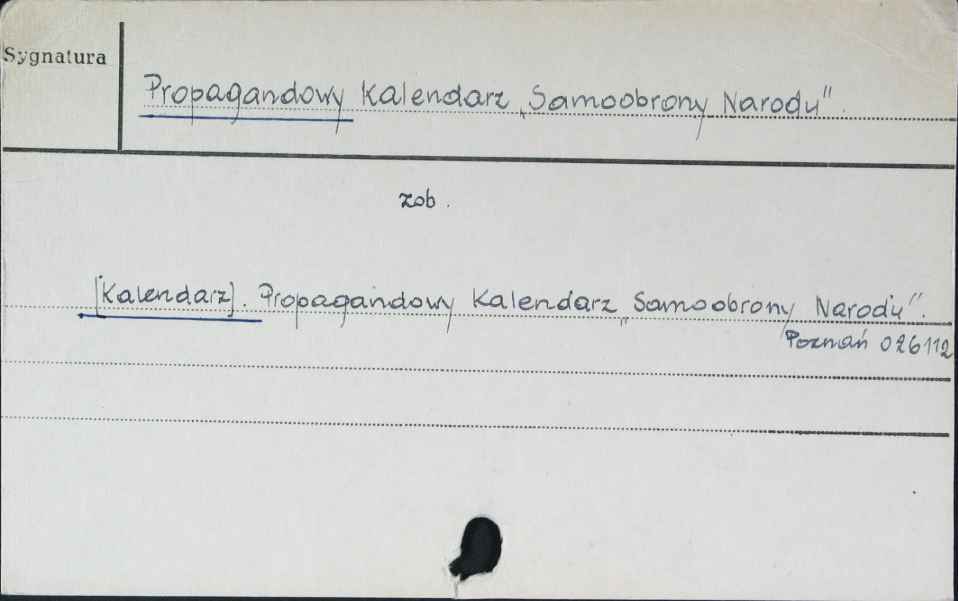 Sygnatura
Propagandowy Kalendarz „Samoobrony Narodu".
zob.
[Kalendarz]. Propagandowy Kalendarz „Samoobrony Narodu".
Poznań 026112